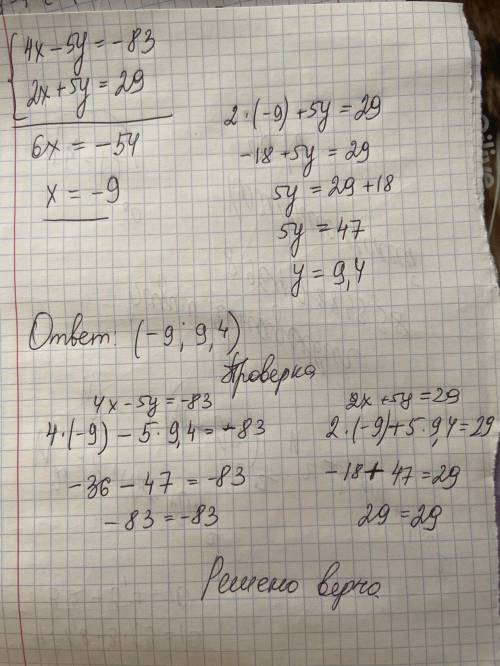 4x − 5y = −83
2x + 5y = 29
6x = −54
x = −9
2 · (−9) + 5y = 29
−18 + 5y = 29
5y = 29 + 18
5y = 47
y = 9,4
Ответ: (−9; 9,4)
Проверка
4x − 5y = −83
4 · (−9) − 5 · 9,4 = −83
−36 − 47 = −83
−83 = −83
2x + 5y = 29
2 · (−9) + 5 · 9,4 = 29
−18 + 47 = 29
29 = 29
Решено верно